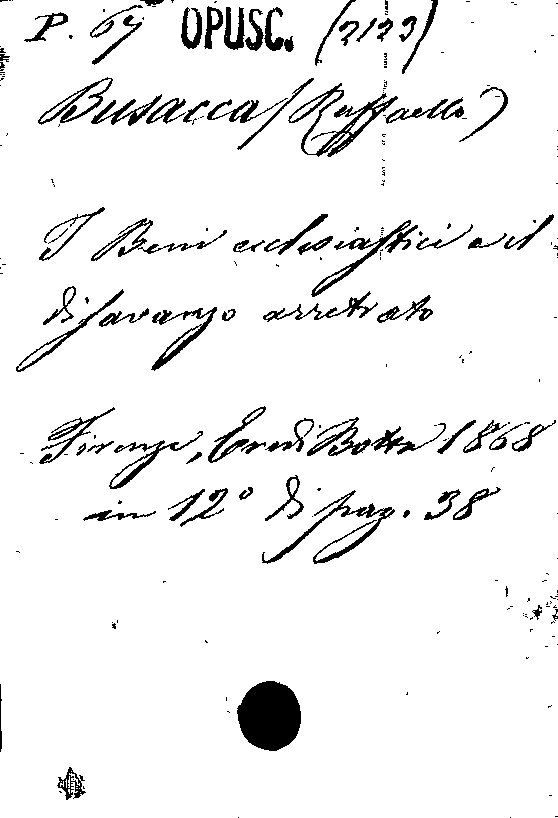 P. 67 OPUSC. (2123)
Busacca (Raffaello)
I Beni ecclesiastici e il
disavanzo arretrato
Firenze, Eredi Botta 1868
in 12º di pag. 38